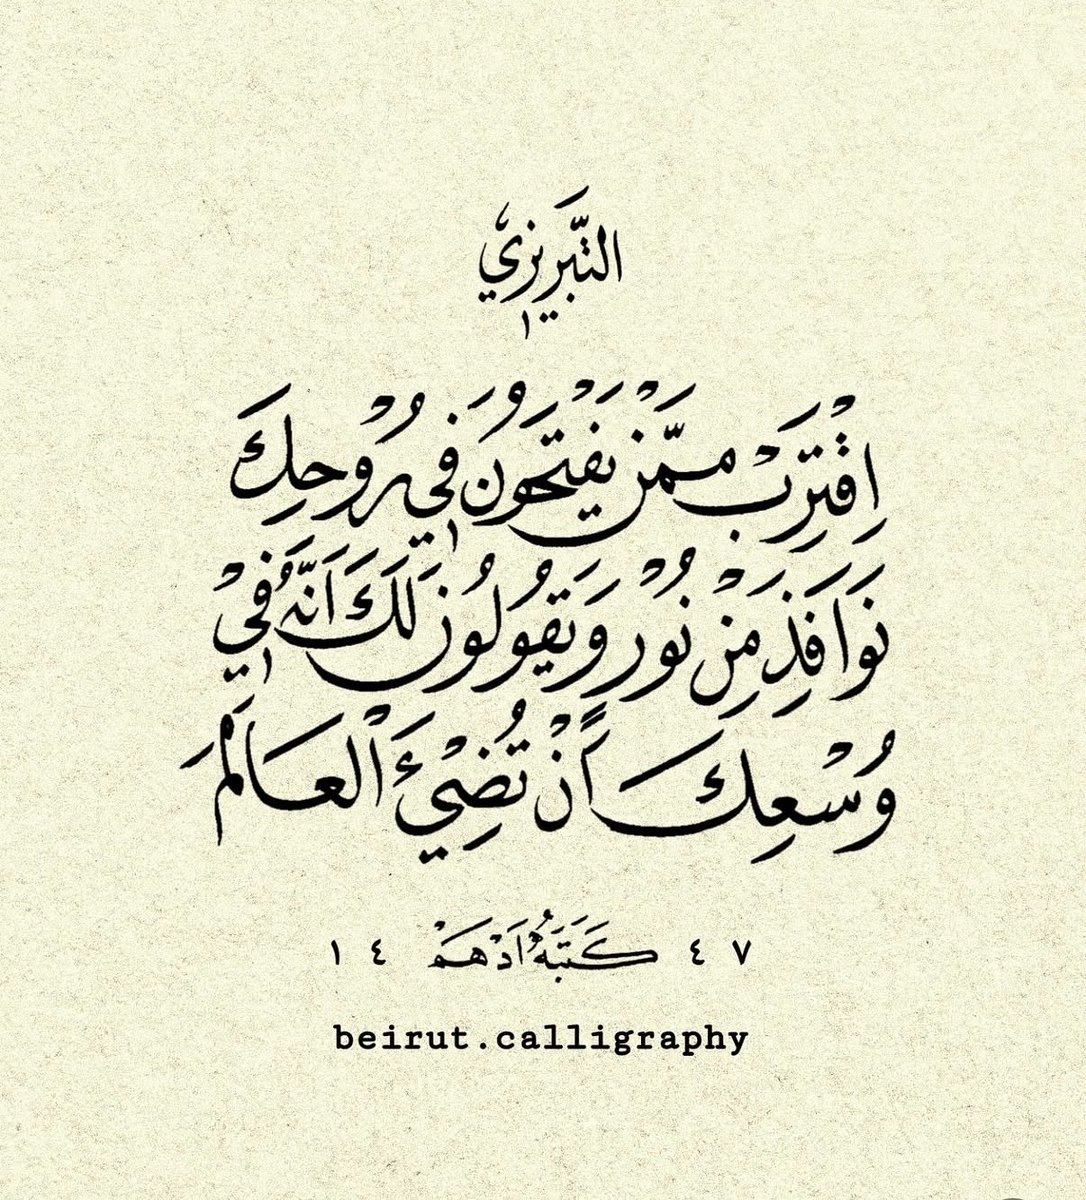 التَّبريزي
اِقْتَرِبْ مِمَّنْ يَفْتَحُونَ فِي رُوْحِكَ
نَوَافِذ مِنْ نُوْر وَيَقُولُونَ لَكَ اَنَّهُ فِيْ
وُسْعِكَ أَنْ تُضِيْءَ الْعَالَمَ
١٤ كَتَبَهُ اَدْهَمْ ٤٧
beirut.calligraphy